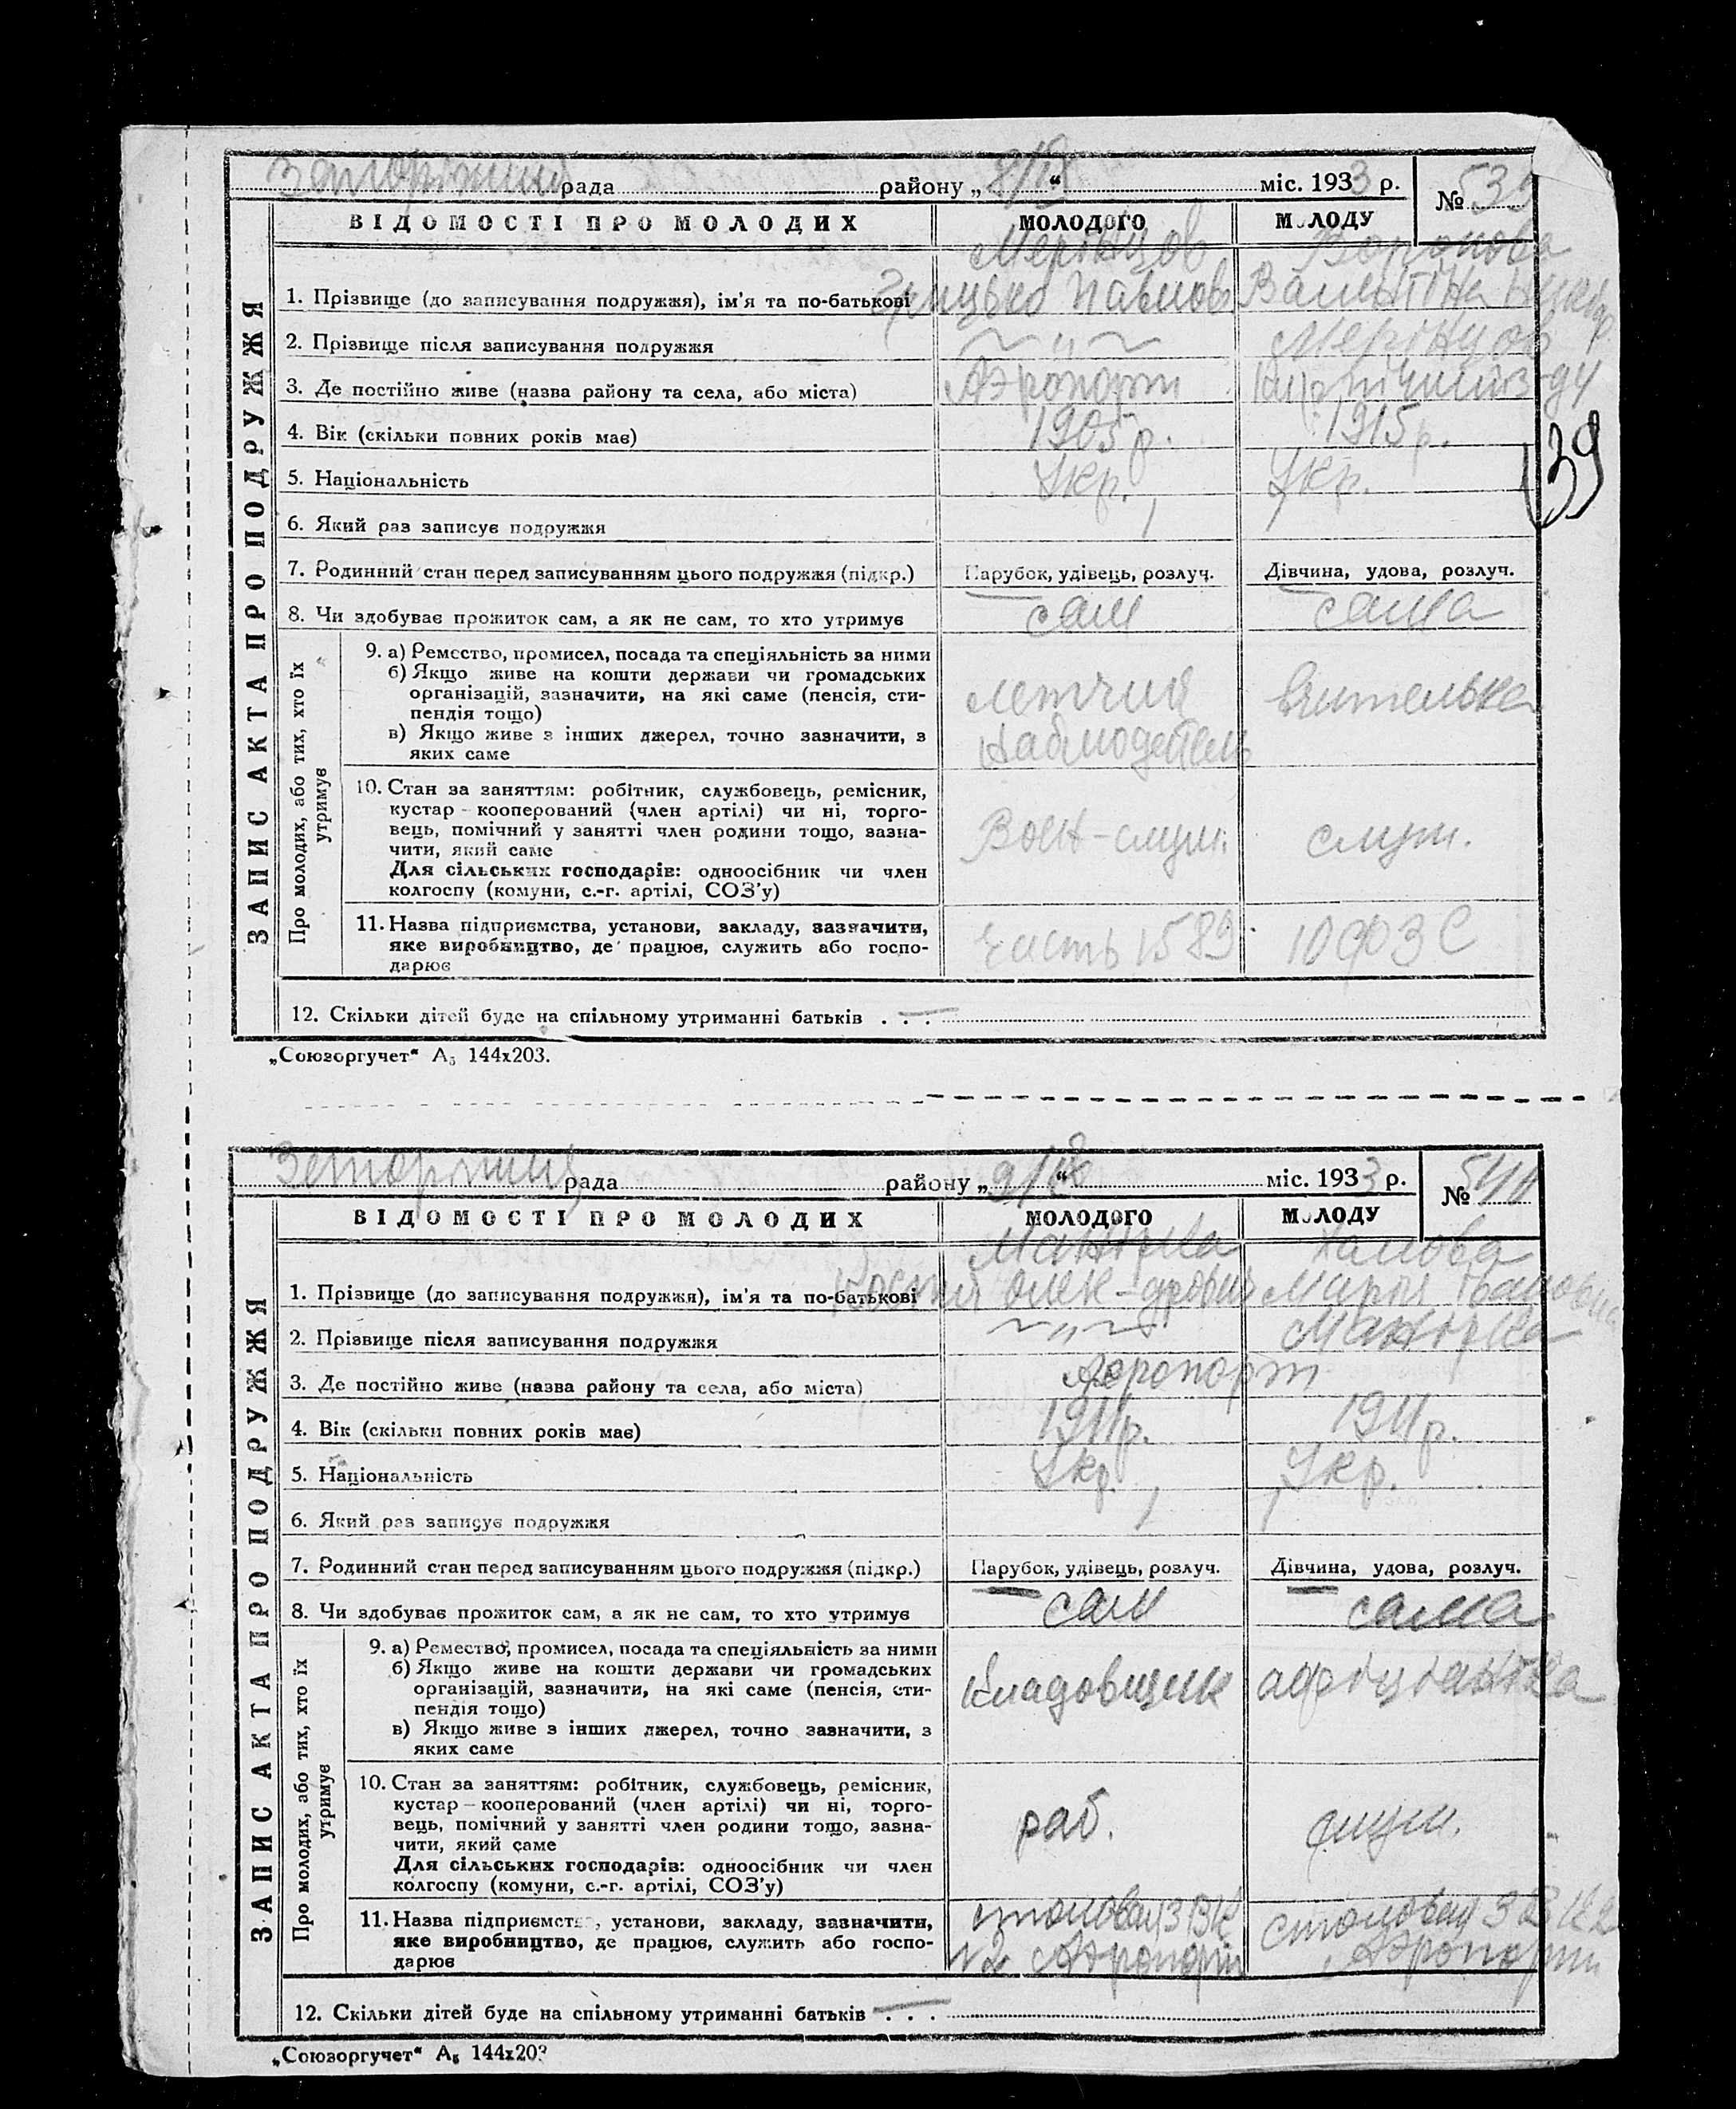 рада району „ 8/ “ міс. 1933 р. № 53
ВІДОМОСТІ ПРО МОЛОДИХ МОЛОДОГО МОЛОДУ
ЗАПИС АКТА ПРО ПОДРУЖЖЯ
Воронова
1. Прізвище (до записування подружжя), ім'я та по-батькові
2. Прізвище після записування подружжя ~ „ ~
3. Де постійно живе (назва району та села, або міста) Аэропорт
4. Вік (скільки повних років має) 1905 р. 1915 р.
5. Національність Укр. Укр.
6. Який раз записує подружжя 1 1
7. Родинний стан перед записуванням цього подружжя (підкр.) Парубок, удівець, розлуч. Дівчина, удова, розлуч.
8. Чи здобуває прожиток сам, а як не сам, то хто утримує сам сама
Про молодих, або тих, хто їх утримує
9. а) Ремество, промисел, посада та спеціяльність за ними
б) Якщо живе на кошти держави чи громадських
організацій, зазначити, на які саме (пенсія, сти-
пендія тощо)
в) Якщо живе з інших джерел, точно зазначити, з
яких саме
летчик вчителька
наблюдатель
10. Стан за заняттям: робітник, службовець, ремісник,
кустар – кооперований (член артілі) чи ні, торго-
вець, помічний у занятті член родини тощо, зазна-
чити, який саме
Для сільських господарів: одноосібник чи член
колгоспу (комуни, с.-г. артілі, СОЗ'у)
Воен-служ. служ.
11. Назва підприємства, установи, закладу, зазначити,
яке виробництво, де працює, служить або госпо-
дарює
часть 1589 10 ФЗС
12. Скільки дітей буде на спільному утриманні батьків . . . —
„Союзоргучет“ А₅ 144х203.
139
рада району „ 9/ “ міс. 1933 р. №
ВІДОМОСТІ ПРО МОЛОДИХ МОЛОДОГО МОЛОДУ
ЗАПИС АКТА ПРО ПОДРУЖЖЯ
1. Прізвище (до записування подружжя), ім'я та по-батькові Марія Івановна
2. Прізвище після записування подружжя ~ „ ~
3. Де постійно живе (назва району та села, або міста) Аэропорт
4. Вік (скільки повних років має) 1911 р. 1911 р.
5. Національність Укр. Укр.
6. Який раз записує подружжя 1 1
7. Родинний стан перед записуванням цього подружжя (підкр.) Парубок, удівець, розлуч. Дівчина, удова, розлуч.
8. Чи здобуває прожиток сам, а як не сам, то хто утримує сам сама
Про молодих, або тих, хто їх утримує
9. а) Ремество, промисел, посада та спеціяльність за ними
б) Якщо живе на кошти держави чи громадських
організацій, зазначити, на які саме (пенсія, сти-
пендія тощо)
в) Якщо живе з інших джерел, точно зазначити, з
яких саме
кладовщик афіціантка
10. Стан за заняттям: робітник, службовець, ремісник,
кустар – кооперований (член артілі) чи ні, торго-
вець, помічний у занятті член родини тощо, зазна-
чити, який саме
Для сільських господарів: одноосібник чи член
колгоспу (комуни, с.-г. артілі, СОЗ'у)
раб. служ.
11. Назва підприємства, установи, закладу, зазначити,
яке виробництво, де працює, служить або госпо-
дарює
столовая ЗВК столовая ЗВК 2
Аэропорт Аэропорт
12. Скільки дітей буде на спільному утриманні батьків . . . —
„Союзоргучет“ А₅ 144х203